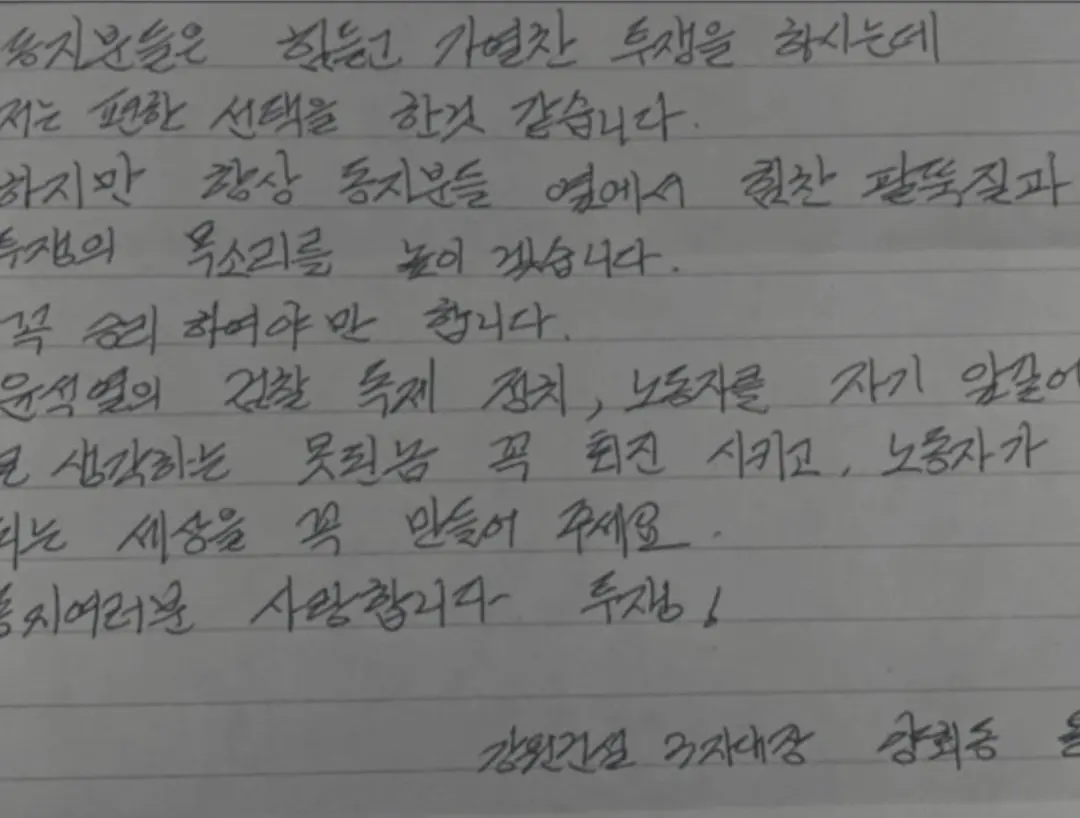 동지분들은 힘들고 가열찬 투쟁을 하시는데
저는 편한 선택을 한것 같습니다.
하지만 항상 동지분들 옆에서 힘찬 팔뚝질과
투쟁의 목소리를 높이 겠습니다.
꼭 승리 하여야만 합니다.
윤석열의 검찰 독재 정치, 노동자를 자기 앞길에
생각하는 못된놈 꼭 퇴진 시키고, 노동자가
되는 세상을 꼭 만들어 주세요.
동지여러분 사랑합니다 투쟁!
강원건설 지대장 양회동